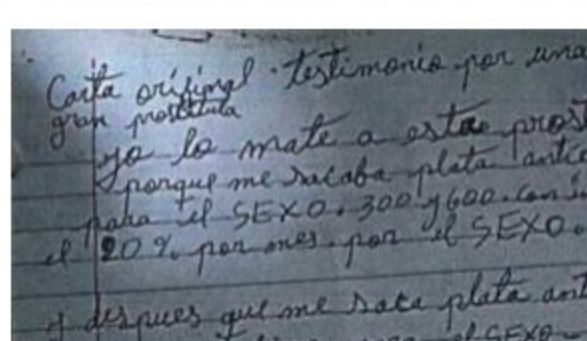 Carta original testimonio por una
gran prostituta
yo lo mate a esta pros
porque me sacaba plata antic
para el SEXO. 300 y 600. con
el 20% por mes. por el SEXO.
y despues que me saca plata ant
el SEXO